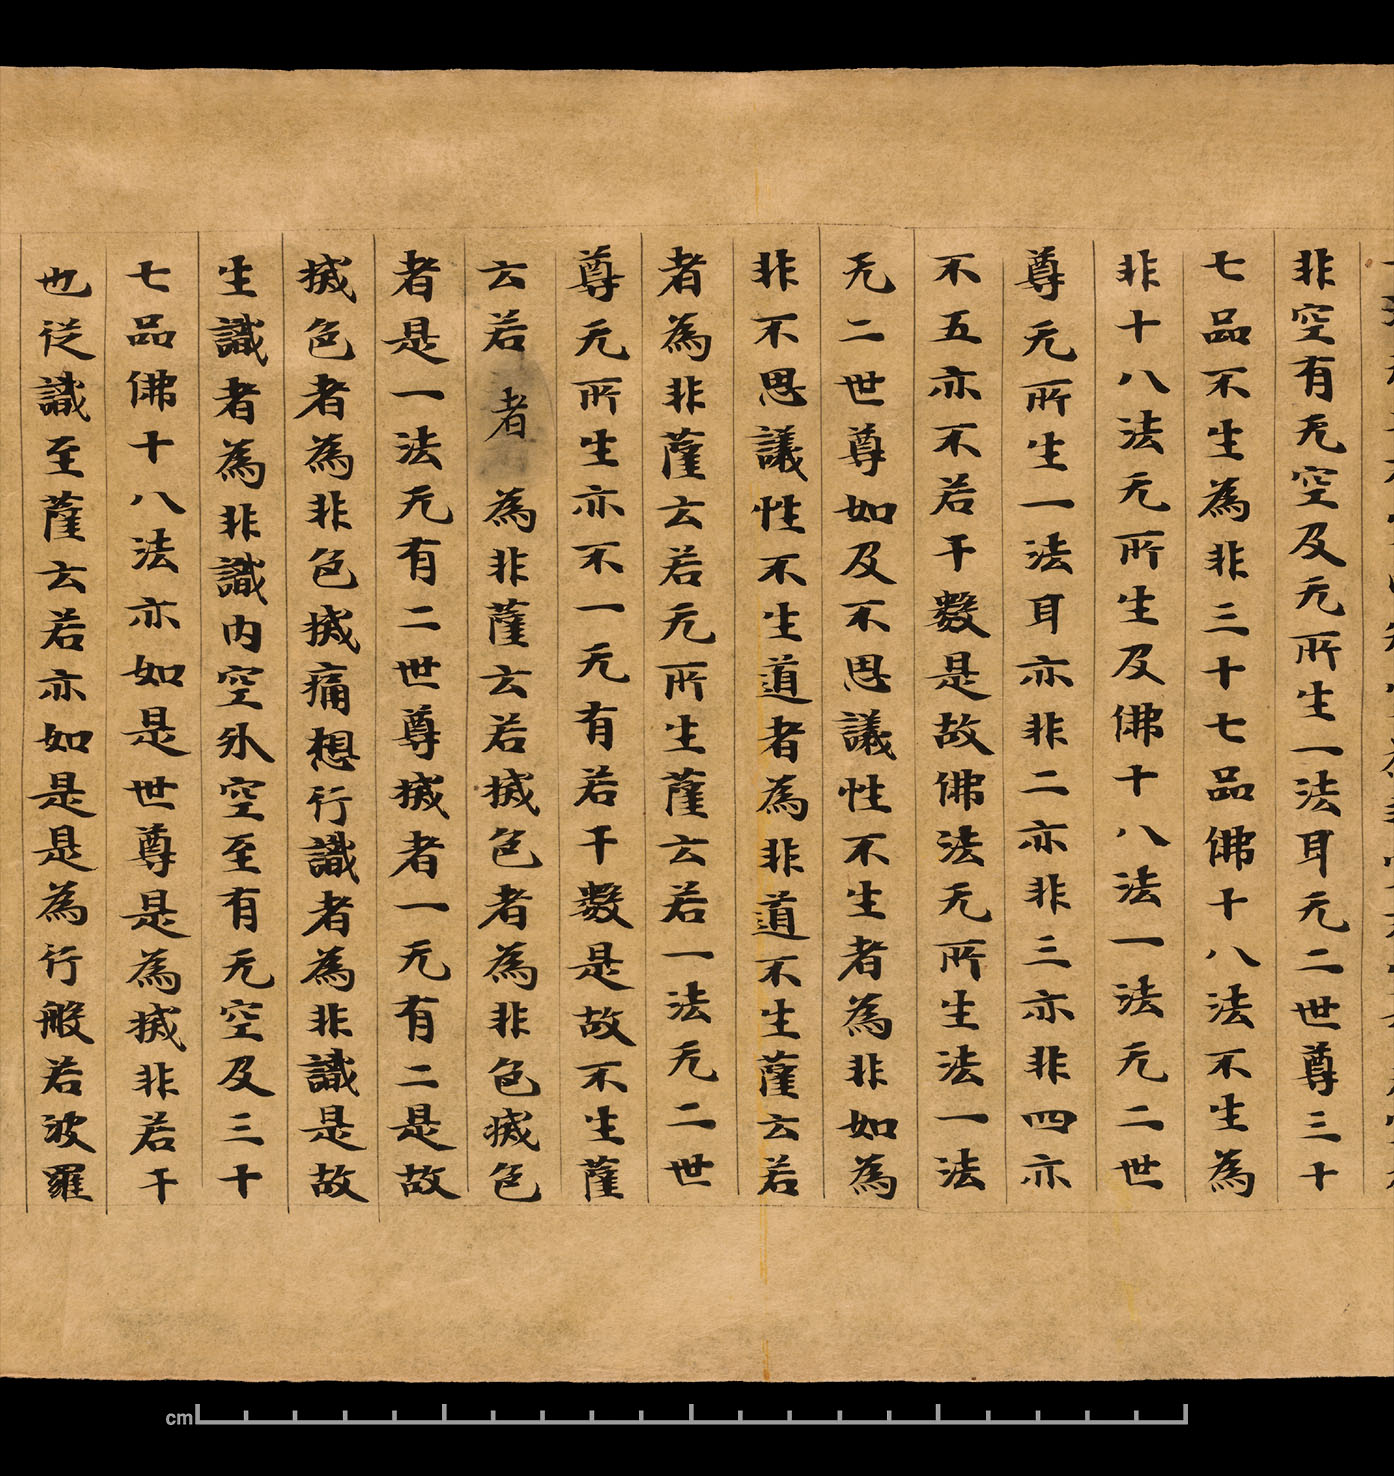 非空有无空及无所生一法耳无二世尊三十
七品不生為非三十七品佛十八法不生為
非十八法无所生及佛十八法一法无二世
尊无所生一法耳亦非二亦非三亦非四亦
不五亦不若干數是故佛法无所生法一法
无二世尊如及不思議性不生者為非如為
非不思議性不生道者為非道不生薩云若
者為非薩云若无所生薩云若一法无二世
尊无所生亦不一无有若干數是故不生薩
云若者為非薩云若滅色者為非色滅色
者是一法无有二世尊滅者一无有二是故
滅色者為非色滅痛想行識者為非識是故
生識者為非識内空外空至有无空及三十
七品佛十八法亦如是世尊是為滅非若干
也従識至薩云若亦如是是為行般若波羅
cm